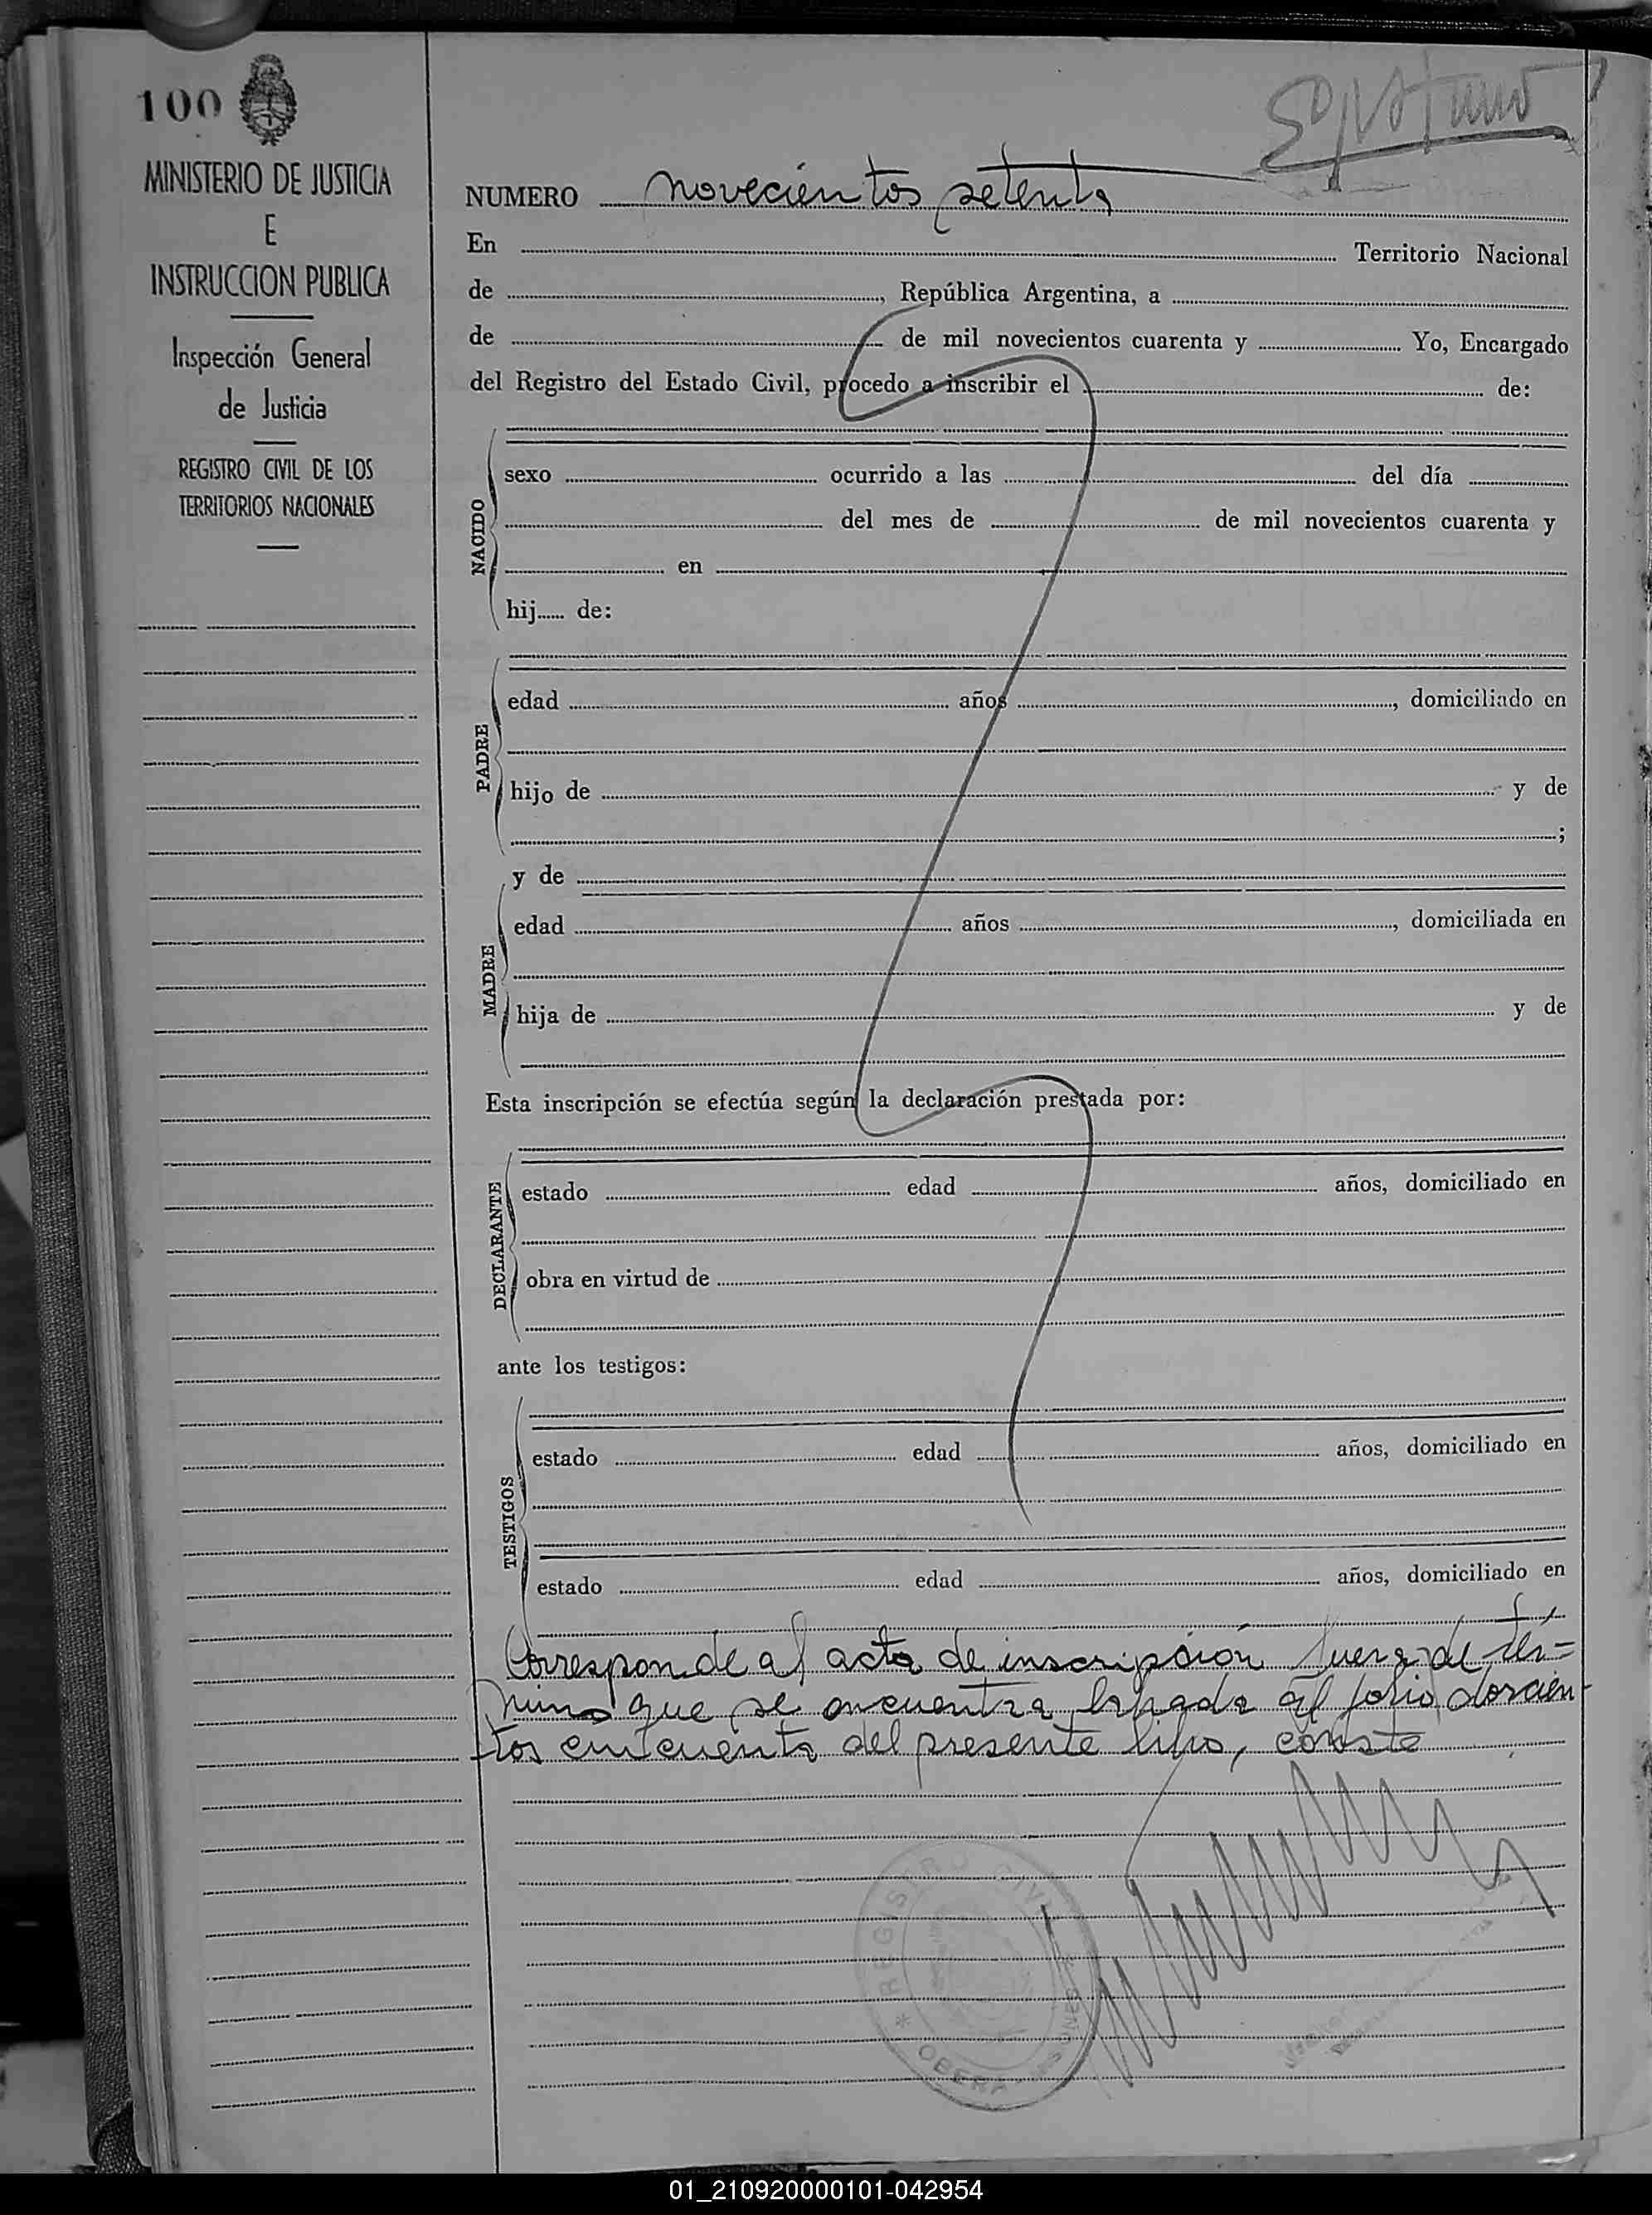 100
MINISTERIO DE JUSTICIA
E
INSTRUCCION PUBLICA
Inspección General
de Justicia
REGISTRO CIVIL DE LOS
TERRITORIOS NACIONALES
NUMERO novecientos setenta
En Territorio Nacional
de , República Argentina, a
de de mil novecientos cuarenta y Yo, Encargado
del Registro del Estado Civil, procedo a inscribir el de:
NACIDO
sexo ocurrido a las del día
del mes de de mil novecientos cuarenta y
en
hij...... de:
PADRE
edad años , domiciliado en
hijo de y de
;
y de
MADRE
edad años , domiciliada en
hija de y de
Esta inscripción se efectúa según la declaración prestada por:
DECLARANTE
estado edad años, domiciliado en
obra en virtud de
ante los testigos:
TESTIGOS
estado edad años, domiciliado en
estado edad años, domiciliado en
Corresponde al acta de inscripción fuera de tér=
mino que se encuentra al folio doscien-
tos cincuenta del presente libro, conste
REGISTRO CIVIL
OBERA MISIONES
01_210920000101-042954